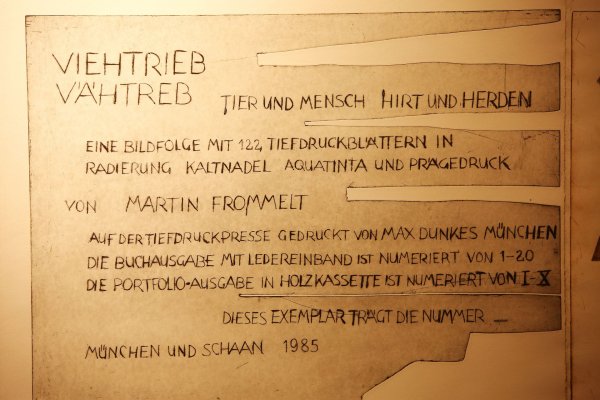 VIEHTRIEB
VÄHTREB
TIER UND MENSCH HIRT UND HERDEN
EINE BILDFOLGE MIT 122 TIEFDRUCKBLÄTTERN IN
RADIERUNG KALTNADEL AQUATINTA UND PRÄGEDRUCK
VON MARTIN FROMMELT
AUF DER TIEFDRUCKPRESSE GEDRUCKT VON MAX DUNKES MÜNCHEN
DIE BUCHAUSGABE MIT LEDEREINBAND IST NUMERIERT VON 1-20
DIE PORTFOLIO-AUSGABE IN HOLZKASSETTE IST NUMERIERT VON I-X
DIESES EXEMPLAR TRÄGT DIE NUMMER _
MÜNCHEN UND SCHAAN 1985